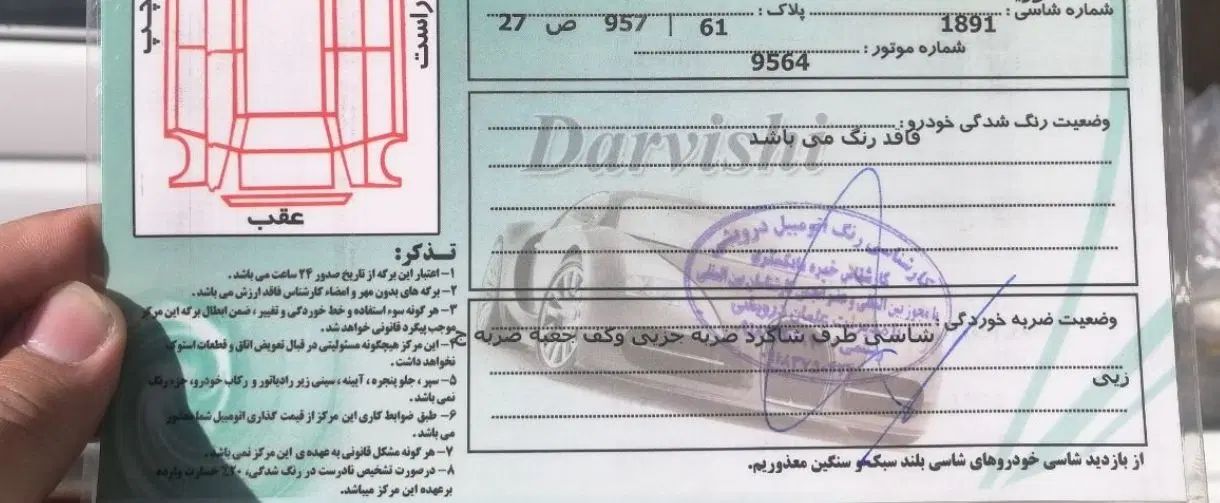 چپ
راست
عقب
شماره شاسی :
1891
پلاک :
61 | 957 ص 27
شماره موتور :
9564
Darvishi
وضعیت رنگ شدگی خودرو :
فاقد رنگ می باشد
کارشناسی رنگ اتومبیل درویشی
وضعیت ضربه خوردگی
شاسی طرف شاگرد ضربه جزیی وکف جعبه ضربه ج
زیی
تذکر:
۱- اعتبار این برگه از تاریخ صدور ۲۴ ساعت می باشد .
۲- برگه های بدون مهر و امضاء کارشناس فاقد ارزش می باشد .
۳- هر گونه سوء استفاده و خط خوردگی و تغییر ، ضمن ابطال برگه این مرکز
موجب پیگرد قانونی خواهد شد .
۴- این مرکز هیچگونه مسئولیتی در قبال تعویض اتاق و قطعات استوک
نخواهد داشت .
۵- سپر ، جلو پنجره ، آیینه ، سینی زیر رادیاتور و رکاب خودرو، جزء رنگ
نمی باشد .
۶- طبق ضوابط کاری این مرکز از قیمت گذاری اتومبیل شما معذور
می باشد .
۷- هر گونه مشکل قانونی به عهده ی این مرکز نمی باشد .
۸- درصورت تشخیص نادرست در رنگ شدگی، ۲۰٪ خسارت وارده
برعهده این مرکز میباشد.
از بازدید شاسی خودروهای شاسی بلند سبک و سنگین معذوریم.